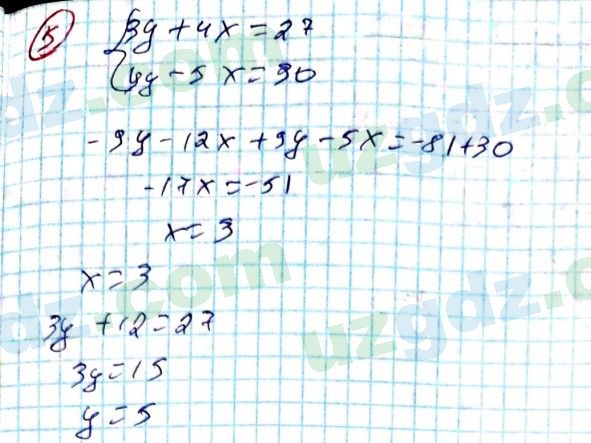 5
3y + 4x = 27
9y - 5x = 30
-9y - 12x + 9y - 5x = -81 + 30
-17x = -51
x = 3
x = 3
3y + 12 = 27
3y = 15
y = 5
uzgdz.com